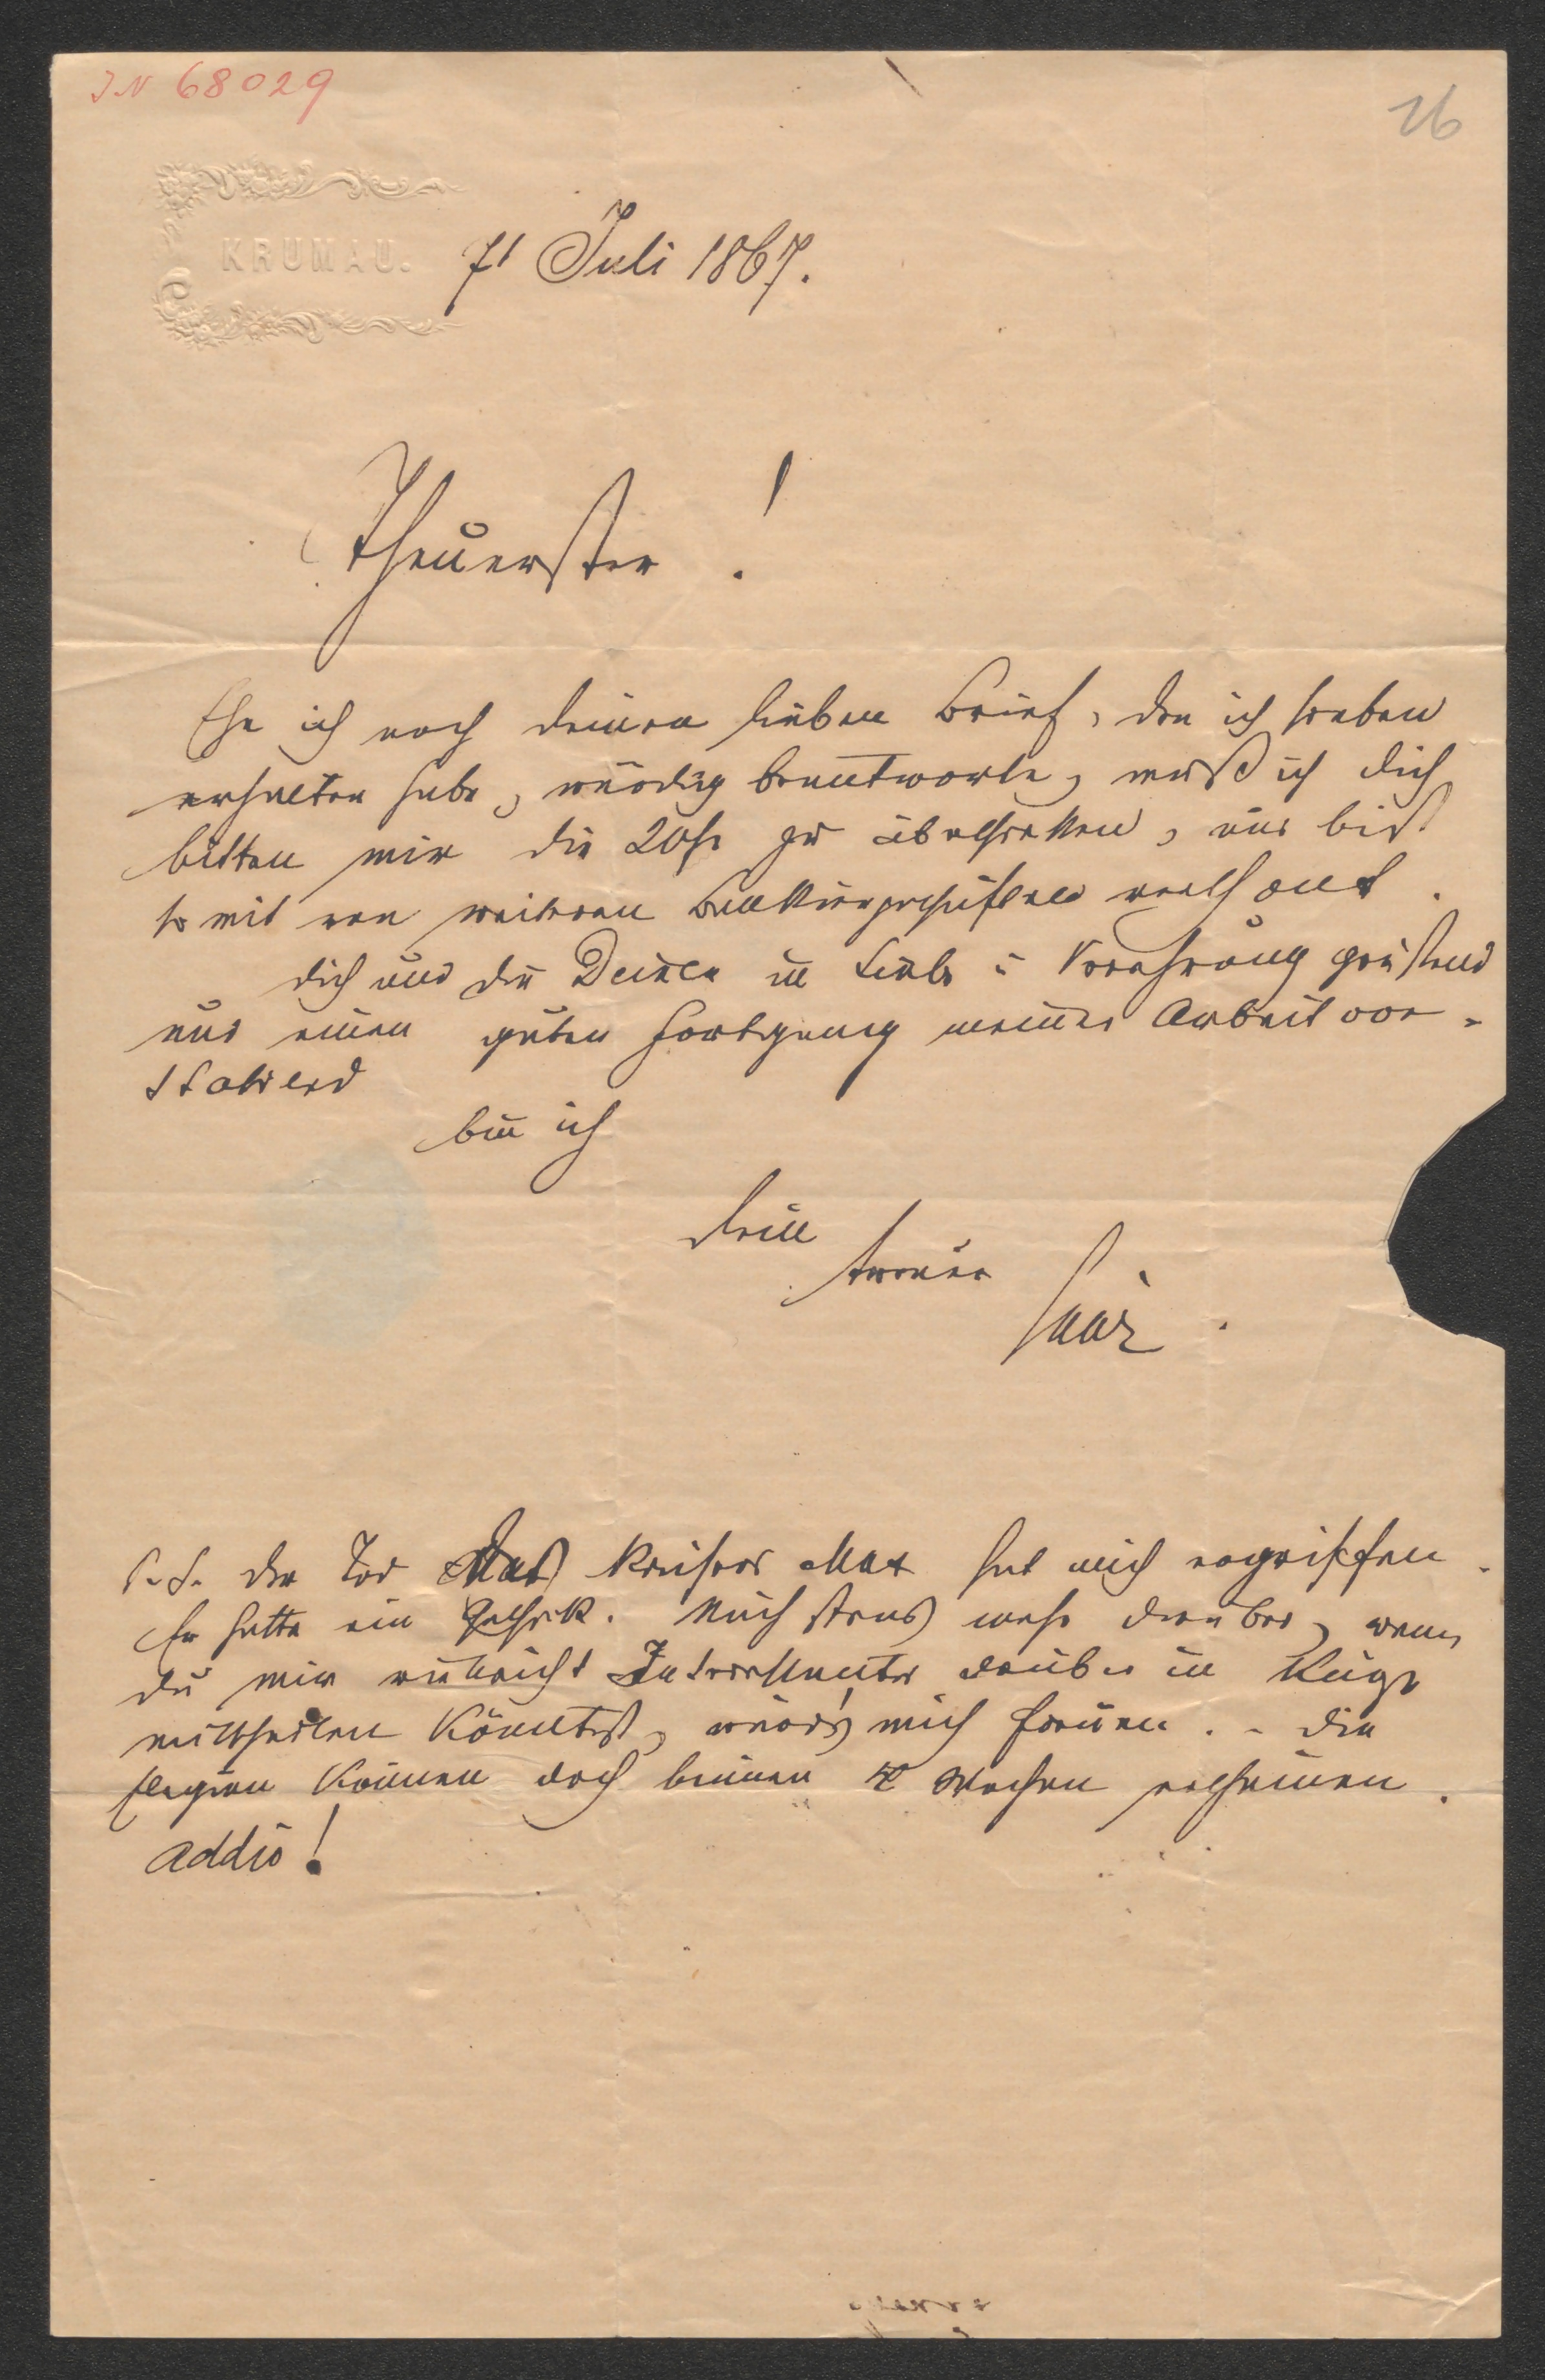 IN 68029
26
KRUMAU.
7t Juli 1867.
Theuerster!
Ehe ich noch deinen lieben Brief, den ich soeben
erhalten habe, würdig beantworte, muß ich dich
bitten mir die 20 fl zu übersenden, und bist
so mit von weiteren Bankiergeschäften
dich und die Deinen in Liebe u Verehrung grüßend
und einen guten Fortgang meiner Arbeit ver-
bin ich
dein
treuer
Saar.
P.S. Der Tod des Kaisers Max hat mich ergriffen.
Er hatte ein Nächstens mehr darüber, wenn
du mir vielleicht Interessantes darüber in Kürze
mittheilen könntest, würd's mich freuen. – Die
Elegien können doch binnen 4 Wochen erscheinen.
Addio!